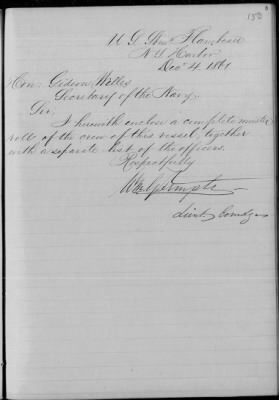 152
U. S. Str. Flambeau
N. Y. Harbor
Decr 4. 1861
Hon: Gideon Welles
Secretary of the Navy.
Sir,
I herewith enclose a complete muster
roll of the crew of this vessel, together
with a separate list of the officers.
Respectfully
Wm. G. Temple
Lieut. Comdg